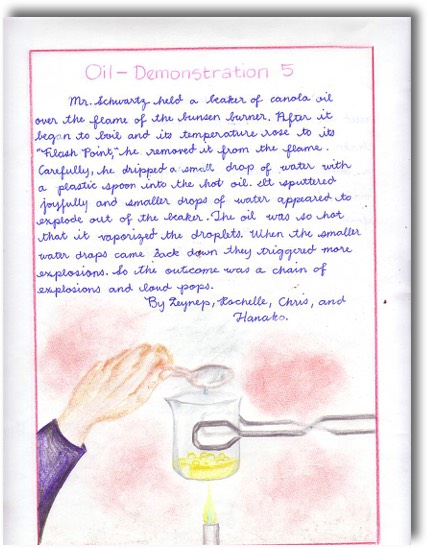 Oil - Demonstration 5
Mr. Schwartz held a beaker of canola oil
over the flame of the bunsen burner. After it
began to boil and its temperature rose to its
"Flash Point," he removed it from the flame.
Carefully, he dripped a small drop of water with
a plastic spoon into the hot oil. It sputtered
joyfully and smaller drops of water appeared to
explode out of the beaker. The oil was so hot
that it vaporized the droplets. When the smaller
water drops came back down they triggered more
explosions. So the outcome was a chain of
explosions and loud pops.
By Zeynep, Rochelle, Chris, and
Hanako.